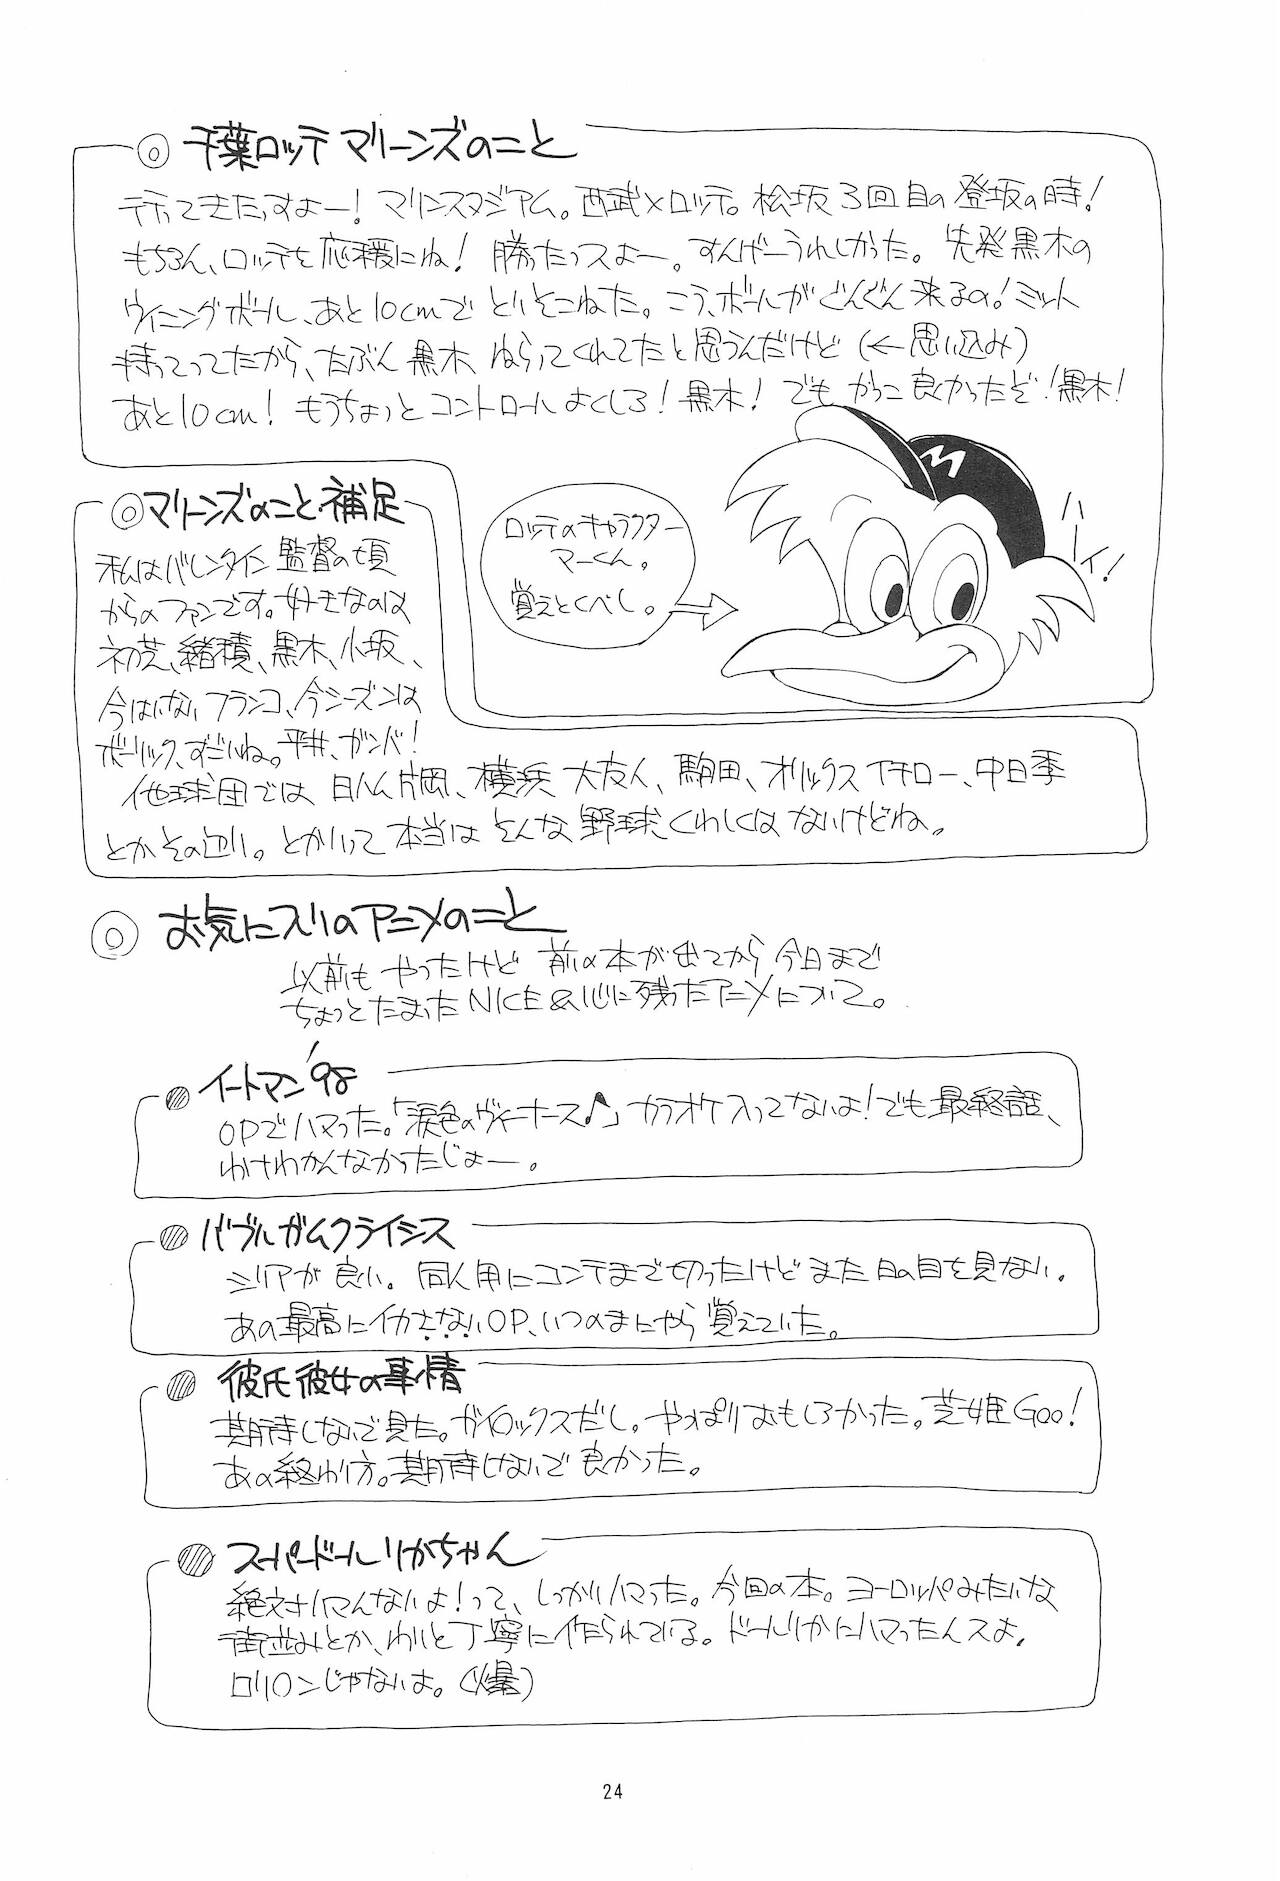 ◎ 千葉ロッテマリーンズのこと
行ってきたっすよー！マリンスタジアム。西武×ロッテ。松坂3回目の登坂の時！
もちろん、ロッテを応援にね！勝ったっスよー。すんげーうれしかった。先発黒木の
ウイニングボール、あと10cmでとりそこねた。こう、ボールがぐんぐん来るの！ミット
持ってってたから、たぶん黒木ねらってくれてたと思うんだけど（←思い込み）
あと10cm！もうちょっとコントロールよくしろ！黒木！でもかっこ良かったぞ！黒木！
ロッテのキャラクター
マーくん。
覚えとくべし。
M
ハーイ！
◎マリーンズのこと・補足
私はバレンタイン監督の頃
からのファンです。好きなのは
初芝、緒積、黒木、小坂、
今はいないフランコ、今シーズンは
ボーリック、すごいね。平井、ガンバ！
他球団では日ハム片岡、横浜大友人、駒田、オリックスイチロー、中日季
とかその辺り。とかいって本当はそんな野球くわしくはないけどね。
◎ お気に入りのアニメのこと
以前もやったけど前の本が出てから今日まで
ちょっとたまったNICE&心に残ったアニメについて。
イートマン'98
OPでハマった。「涙色のヴィーナス♪」カラオケ入ってないよ！でも最終話、
わけわかんなかったじょー。
バブルガムクライシス
シリアが良い。同人用にコンテまで切ったけどまだ日の目を見ない。
あの最高にイカさないOP、いつのまにやら覚えていた。
彼氏彼女の事情
期待しないで見た。ガイロックスだし。やっぱりおもしろかった。芝姫Goo！
あの終わり方。期待しないで良かった。
スーパードールリカちゃん
絶対ハマんないよ！って、しっかりハマった。今回の本。ヨーロッパみたいな
街並みとか、わりと丁寧に作られている。ドールリカにハマったんスよ。
ロリ○ンじゃないよ。（爆）
24